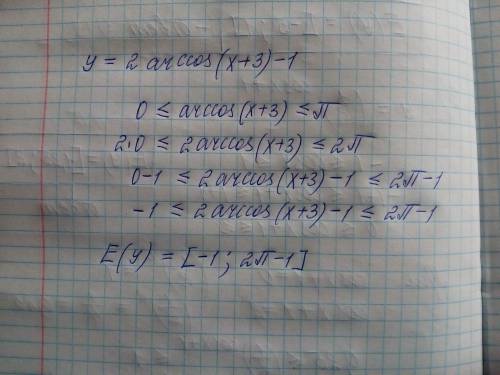 y = 2 arccos(x+3) - 1
0 ≤ arccos(x+3) ≤ π
2·0 ≤ 2arccos(x+3) ≤ 2π
0-1 ≤ 2arccos(x+3) - 1 ≤ 2π-1
-1 ≤ 2arccos(x+3) - 1 ≤ 2π-1
E(y) = [-1; 2π-1]